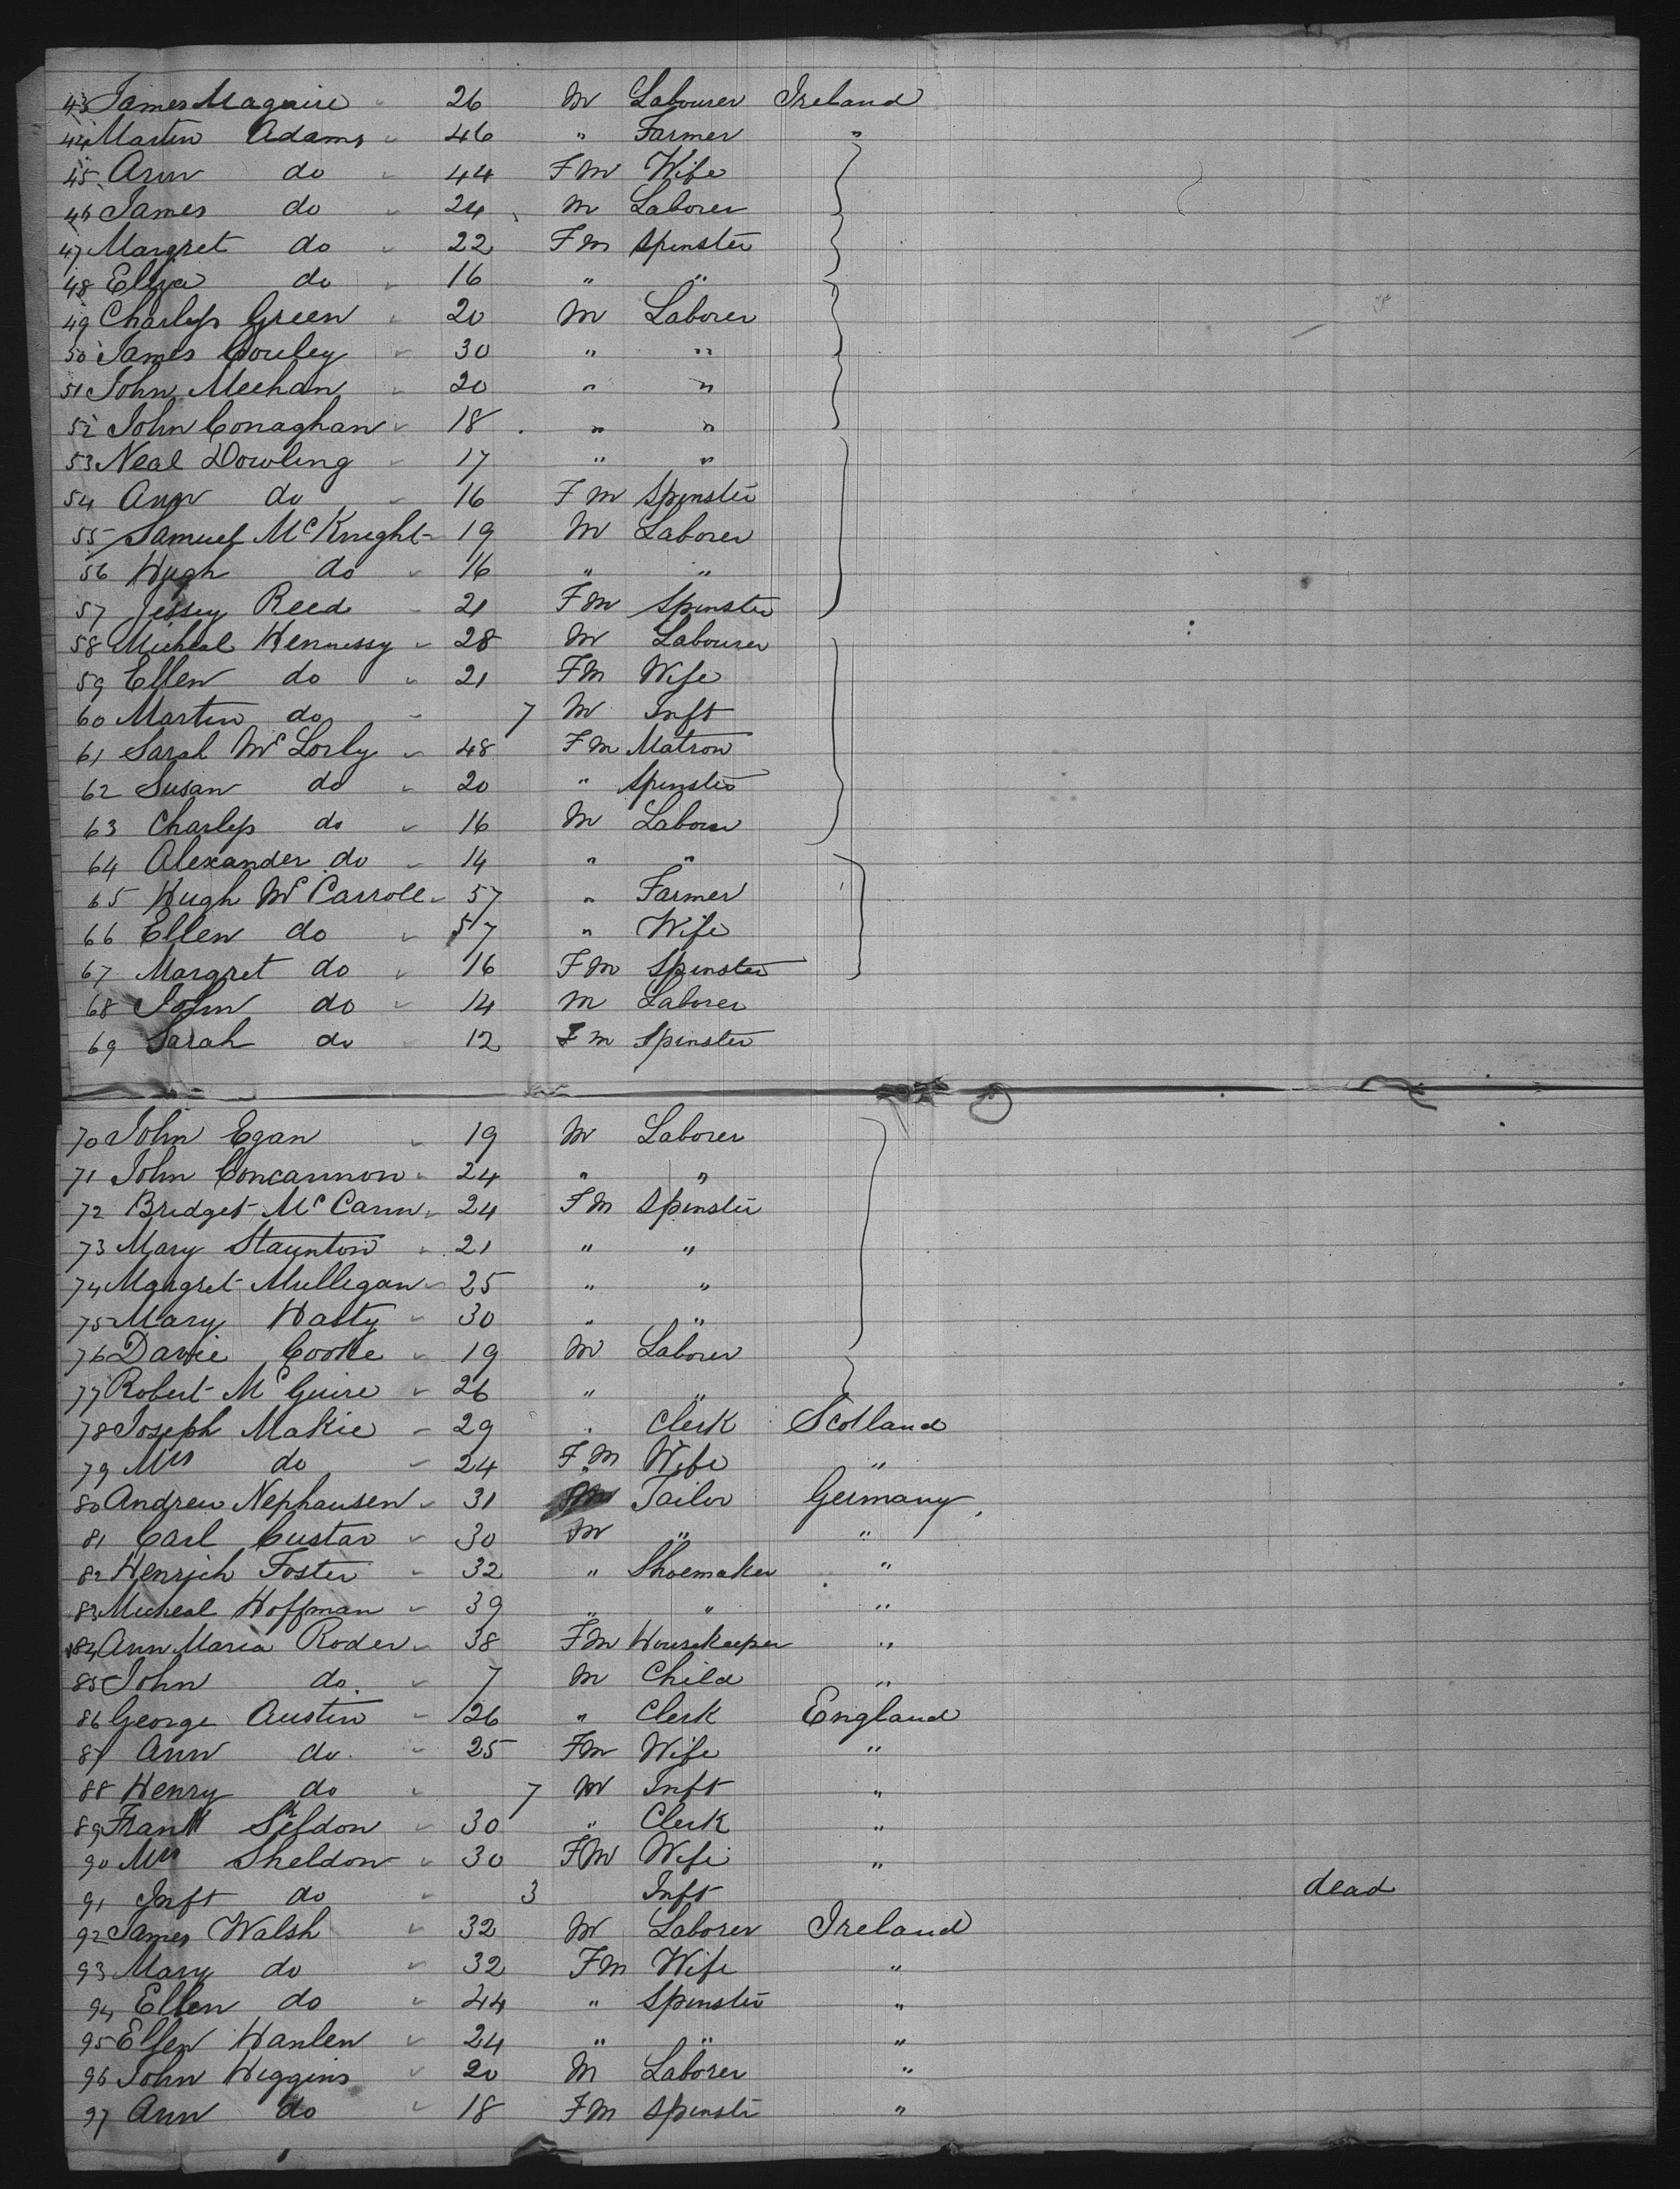 43 James Maguire 26 M Labourer Ireland
44 Martin Adams 46 " Farmer "
45 Ann do 44 Fm Wife
46 James do 24 M Laborer
47 Margret do 22 Fm Spinster
48 Eliza do 16 " "
49 Charless Green 20 M Laborer
50 James Couley 30 " "
51 John Meehan 20 " "
52 John Conaghan 18 " "
53 Neal Dowling 17 " "
54 Ann do 16 Fm Spinster
55 Samuel McKnight 19 M Laborer
56 Hugh do 16 " "
57 Jessey Reed 21 Fm Spinster
58 Micheal Hennessy 28 M Labourer
59 Ellen do 21 Fm Wife
60 Martin do 7 M Inft
61 Sarah McLorly 48 Fm Matron
62 Susan do 20 " Spinster
63 Charless do 16 M Laborer
64 Alexander do 14 " "
65 Hugh McCarroll 57 " Farmer
66 Ellen do 57 " Wife
67 Margret do 16 Fm Spinster
68 John do 14 M Laborer
69 Sarah do 12 Fm Spinster
70 John Egan 19 M Laborer
71 John Concannon 24 " "
72 Bridget McCann 24 Fm Spinster
73 Mary Staunton 21 " "
74 Margret Mulligan 25 " "
75 Mary Hasty 30 " "
76 Davie Cooke 19 M Laborer
77 Robert McGuire 26 " "
78 Joseph Makie 29 " Clerk Scotland
79 Mrs do 24 Fm Wife "
80 Andrew Nephausen 31 Tailor Germany
81 Carl Custav 30 M " "
82 Henrich Foster 32 " Shoemaker "
83 Micheal Hoffman 39 " " "
84 Ann Maria Roder 38 Fm Housekeeper "
85 John do. 7 M Child "
86 George Austin 26 " Clerk England
87 Ann do. 25 Fm Wife "
88 Henry do 7 M Inft "
89 Frank Sheldon 30 " Clerk "
90 Mrs Sheldon 30 Fm Wife "
91 Inft do 3 Inft dead
92 James Walsh 32 M Laborer Ireland
93 Mary do 32 Fm Wife "
94 Ellen do 44 " Spinster "
95 Ellen Hanlen 24 " " "
96 John Higgins 20 M Laborer "
97 Ann do 18 Fm Spinstr "